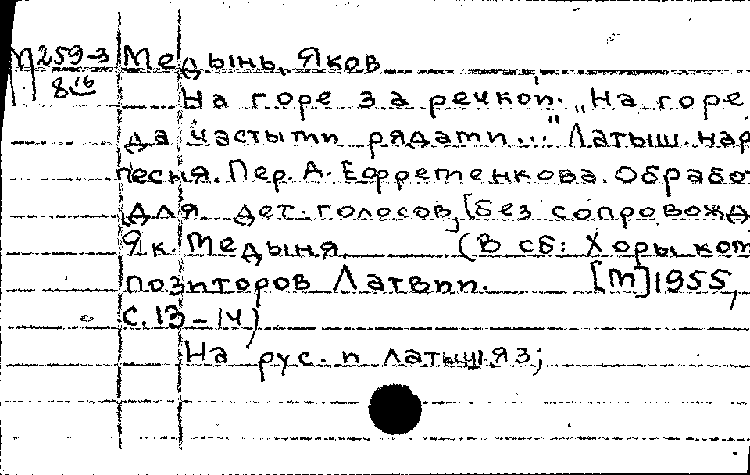 М259-3 Медынь, Яков
8 16
На горе за речкой. „На горе
да частыми рядами..." Латыш. нар
песня. Пер. А. Ефременкова. Обрабо
для дет. голосов, [без сопровожд
Як. Медыня. (В сб: Хоры ком
позиторов Латвии. [М] 1955,
с. 13-14)
На рус. и латыш. яз;